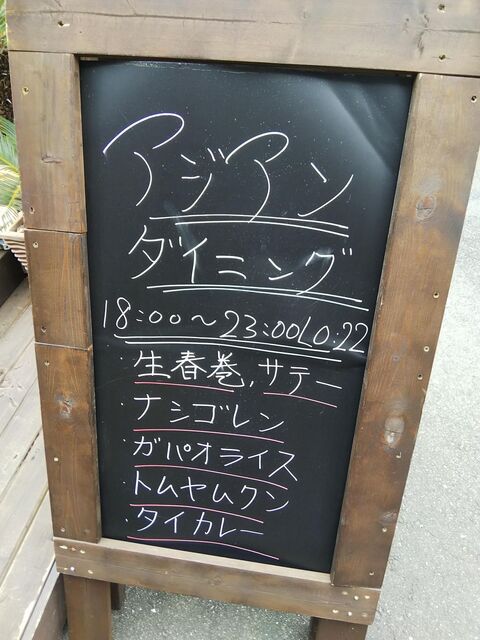 アジアン
ダイニング
18:00〜23:00 L0:22
・生春巻,サテー
・ナシゴレン
・ガパオライス
・トムヤムクン
・タイカレー